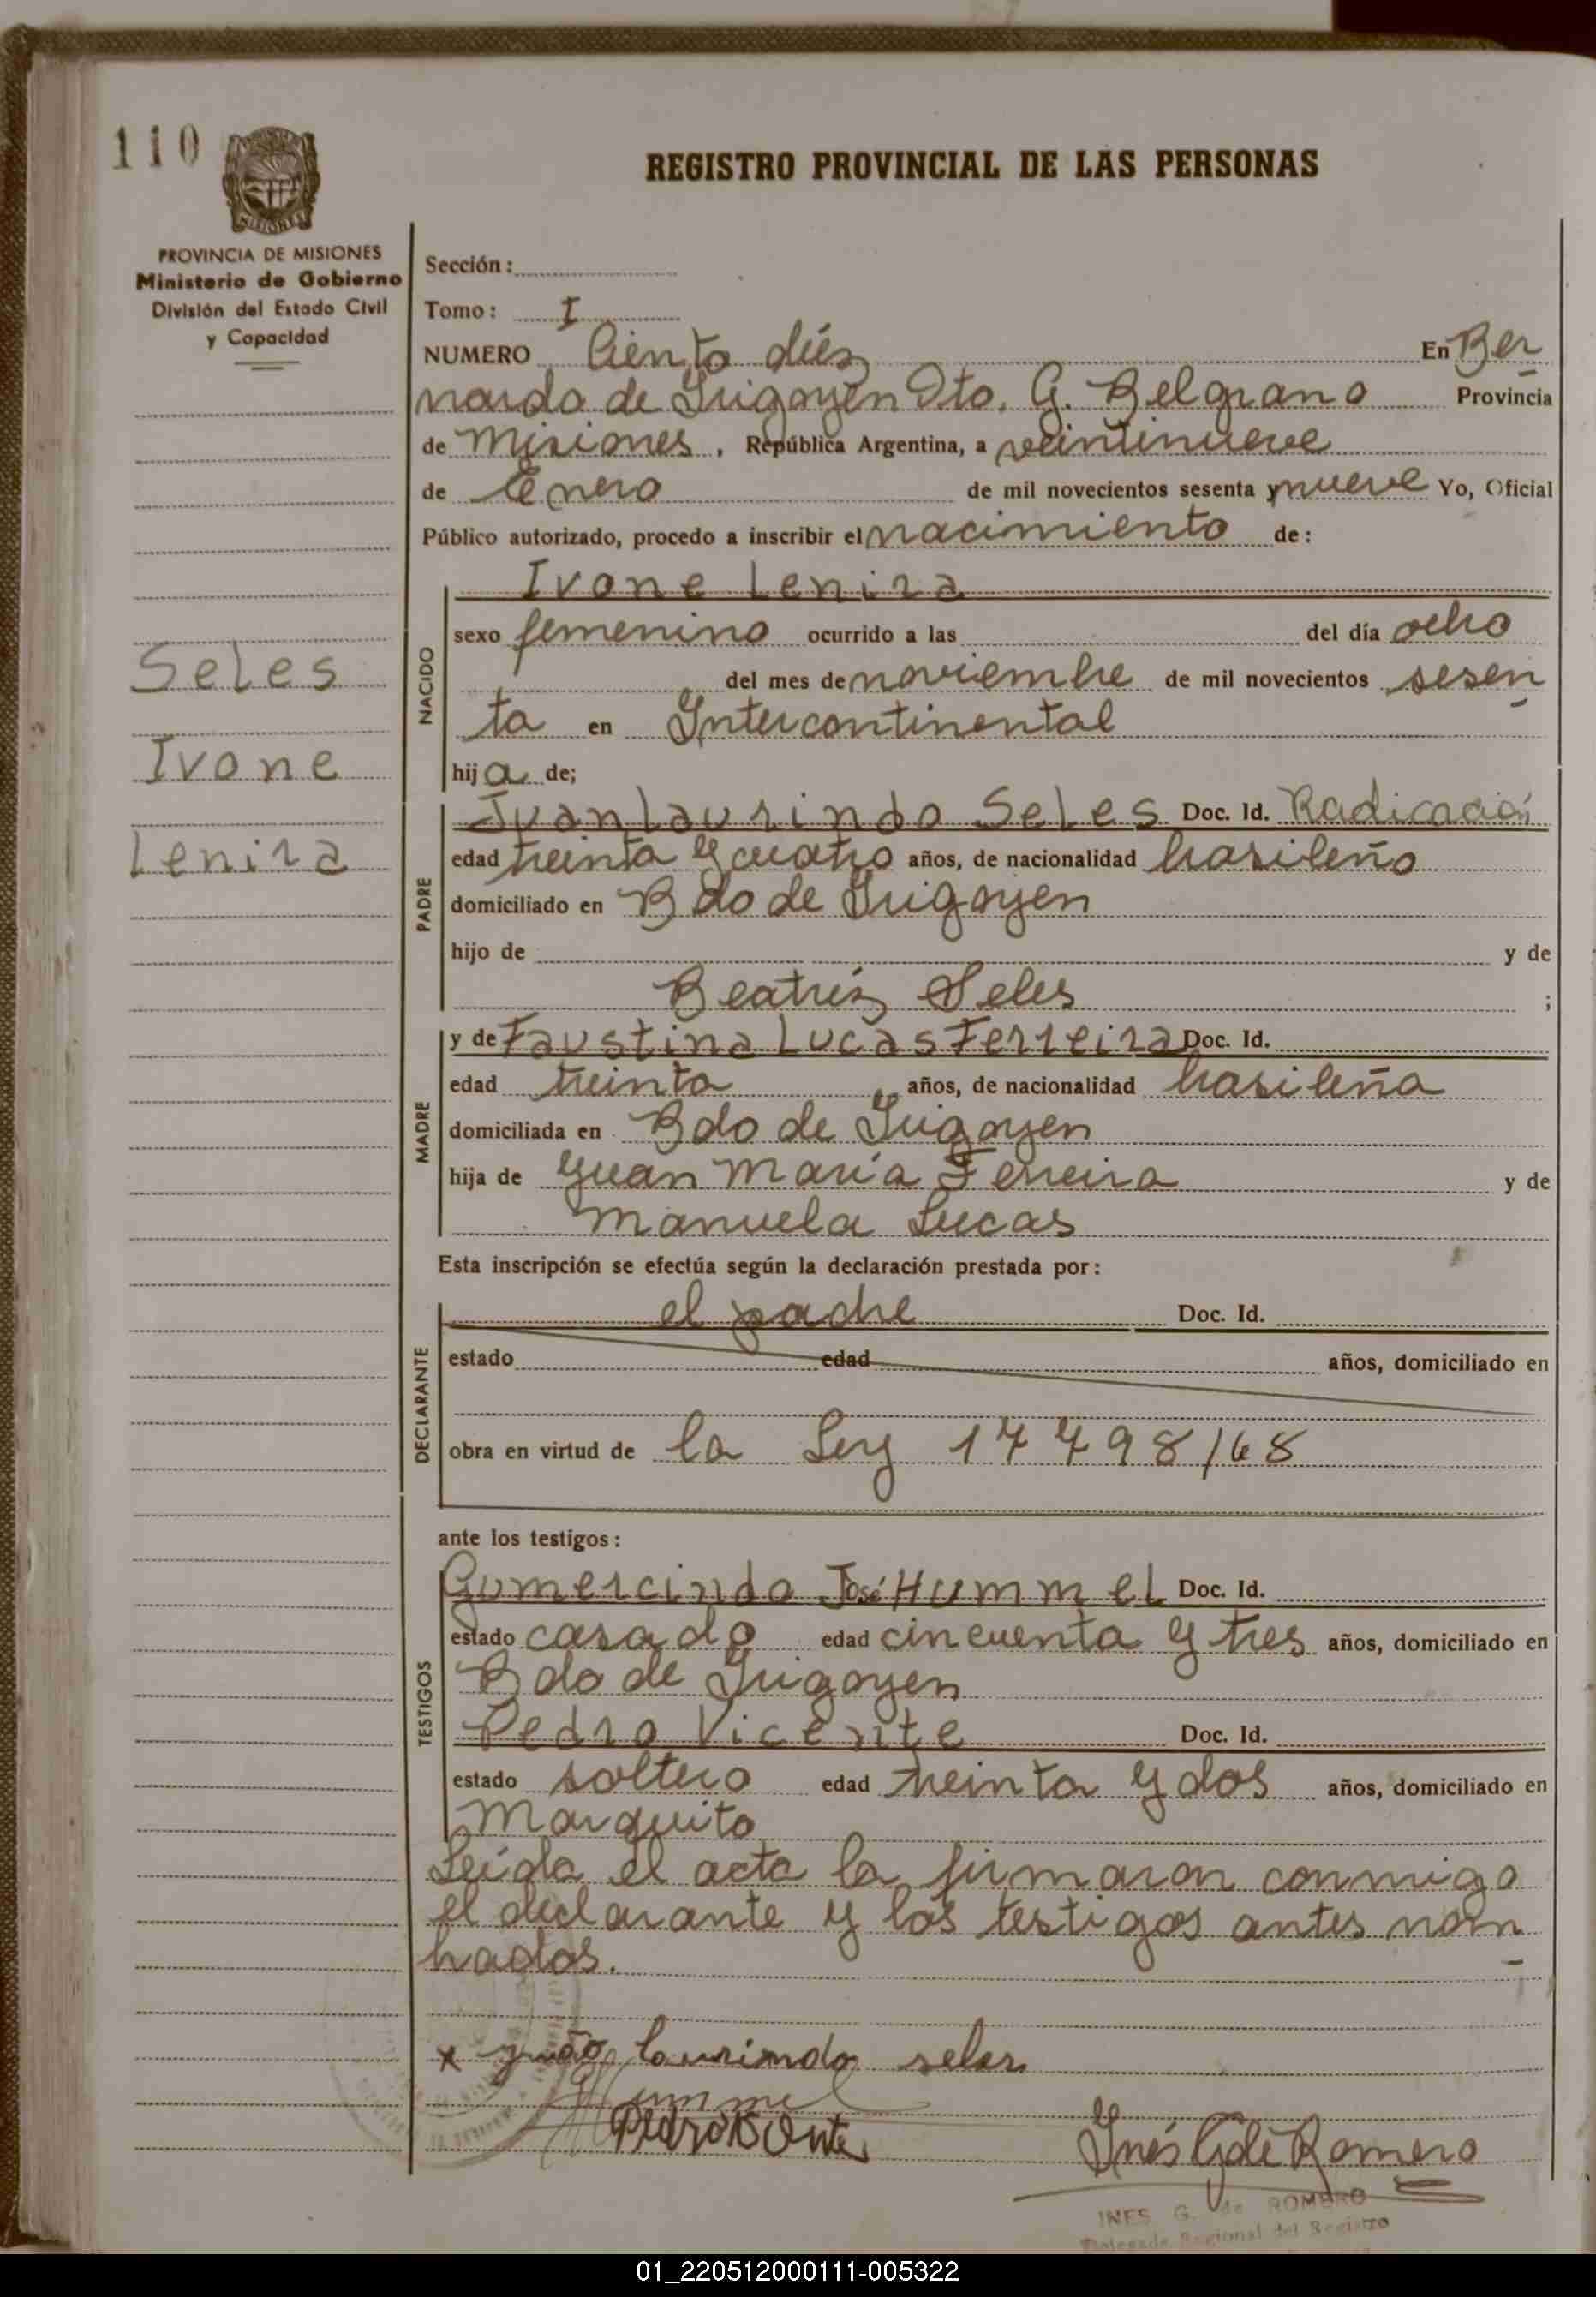 110
REGISTRO PROVINCIAL DE LAS PERSONAS
MISIONES
PROVINCIA DE MISIONES
Ministerio de Gobierno
División del Estado Civil
y Capacidad
Seles
Ivone
Lenira
Sección:
Tomo: I
NUMERO Ciento diéz En Ber
nardo de Irigoyen Dto. G. Belgrano Provincia
de Misiones, República Argentina, a veintinueve
de Enero de mil novecientos sesenta y nueve Yo, Oficial
Público autorizado, procedo a inscribir el nacimiento de:
NACIDO
Ivone Lenira
sexo femenino ocurrido a las del día ocho
del mes de noviembre de mil novecientos sesen
ta en Intercontinental
hija de;
PADRE
Juan Laurindo Seles Doc. Id. Radicación
edad treinta y cuatro años, de nacionalidad brasileño
domiciliado en Bdo de Irigoyen
hijo de y de
Beatriz Seles ;
MADRE
y de Faustina Lucas Ferreira Doc. Id.
edad treinta años, de nacionalidad brasileña
domiciliada en Bdo de Irigoyen
hija de Juan María Ferreira y de
Manuela Lucas
Esta inscripción se efectúa según la declaración prestada por:
DECLARANTE
el padre Doc. Id.
estado edad años, domiciliado en
obra en virtud de la Ley 17498/68
ante los testigos:
TESTIGOS
Gumercindo José Hummel Doc. Id.
estado casado edad cincuenta y tres años, domiciliado en
Bdo de Irigoyen
Pedro Vicente Doc. Id.
estado soltero edad treinta y dos años, domiciliado en
Marquito
Leída el acta la firmaron conmigo
el declarante y los testigos antes nom
brados.
x juão laurindo seles
Hummel
Pedro
Inés G de Romero
INES G. de ROMERO
Delegada Regional del Registro
01_220512000111-005322